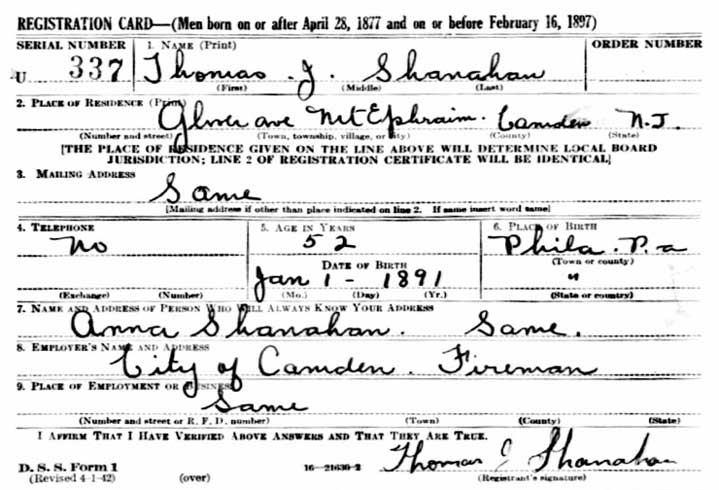 REGISTRATION CARD—(Men born on or after April 28, 1877 and on or before February 16, 1897)
SERIAL NUMBER 1. NAME (Print) ORDER NUMBER
U 337 Thomas J. Shanahan
(First) (Middle) (Last)
2. PLACE OF RESIDENCE (Print)
Glover ave Mt Ephraim. Camden N.J.
(Number and street) (Town, township, village, or city) (County) (State)
[THE PLACE OF RESIDENCE GIVEN ON THE LINE ABOVE WILL DETERMINE LOCAL BOARD
JURISDICTION; LINE 2 OF REGISTRATION CERTIFICATE WILL BE IDENTICAL]
3. MAILING ADDRESS
Same
[Mailing address if other than place indicated on line 2. If same insert word same]
4. TELEPHONE 5. AGE IN YEARS 6. PLACE OF BIRTH
No 52 Phila. P.a
DATE OF BIRTH (Town or county)
Jan 1 - 1891 "
(Exchange) (Number) (Mo.) (Day) (Yr.) (State or country)
7. NAME AND ADDRESS OF PERSON WHO WILL ALWAYS KNOW YOUR ADDRESS
Anna Shanahan. Same.
8. EMPLOYER'S NAME AND ADDRESS
City of Camden. Fireman
9. PLACE OF EMPLOYMENT OR BUSINESS
Same
(Number and street or R. F. D. number) (Town) (County) (State)
I AFFIRM THAT I HAVE VERIFIED ABOVE ANSWERS AND THAT THEY ARE TRUE.
Thomas J Shanahan
D. S. S. Form 1 16—21630-2
(Revised 4-1-42) (over) (Registrant's signature)